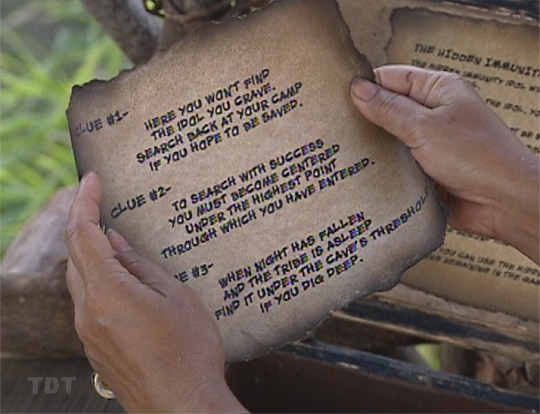 CLUE #1-
HERE YOU WON'T FIND
THE IDOL YOU CRAVE.
SEARCH BACK AT YOUR CAMP
IF YOU HOPE TO BE SAVED.
CLUE #2-
TO SEARCH WITH SUCCESS
YOU MUST BECOME CENTERED
UNDER THE HIGHEST POINT
THROUGH WHICH YOU HAVE ENTERED.
#3-
WHEN NIGHT HAS FALLEN
AND THE TRIBE IS ASLEEP
FIND IT UNDER THE CAVE'S THRESHOLD
IF YOU DIG DEEP.
THE HIDDEN IMMUNIT
HIDDEN IMMUNITY IDOL
THE IDOL, YO
YOU CAN USE THE HIDDE
REMAINING IN THE GAM
TDT